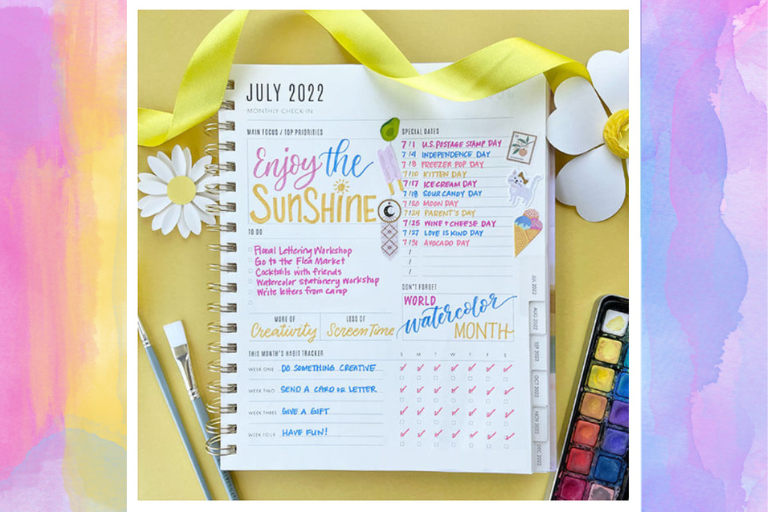 JULY 2022
MONTHLY CHECK-IN
MAIN FOCUS / TOP PRIORITIES
Enjoy the
SunSHINE
TO DO
Floral Lettering Workshop
Go to the Flea Market
Cocktails with friends
Watercolor stationery workshop
Write letters from camp
MORE OF
Creativity
LESS OF
Screen Time
SPECIAL DATES
7/1 U.S. POSTAGE STAMP DAY
7/4 INDEPENDENCE DAY
7/8 FREEZER POP DAY
7/10 KITTEN DAY
7/17 ICE CREAM DAY
7/18 SOUR CANDY DAY
7/20 MOON DAY
7/24 PARENT'S DAY
7/25 WINE & CHEESE DAY
7/27 LOVE IS KIND DAY
7/31 AVOCADO DAY
/
/
/
DON'T FORGET
WORLD
watercolor
MONTH
THIS MONTH'S HABIT TRACKER
S M T W T F S
WEEK ONE DO SOMETHING CREATIVE
WEEK TWO SEND A CARD OR LETTER
WEEK THREE GIVE A GIFT
WEEK FOUR HAVE FUN!
JUL 2022
AUG 2022
SEP 2022
OCT 2022
NOV 2022
DEC 2022